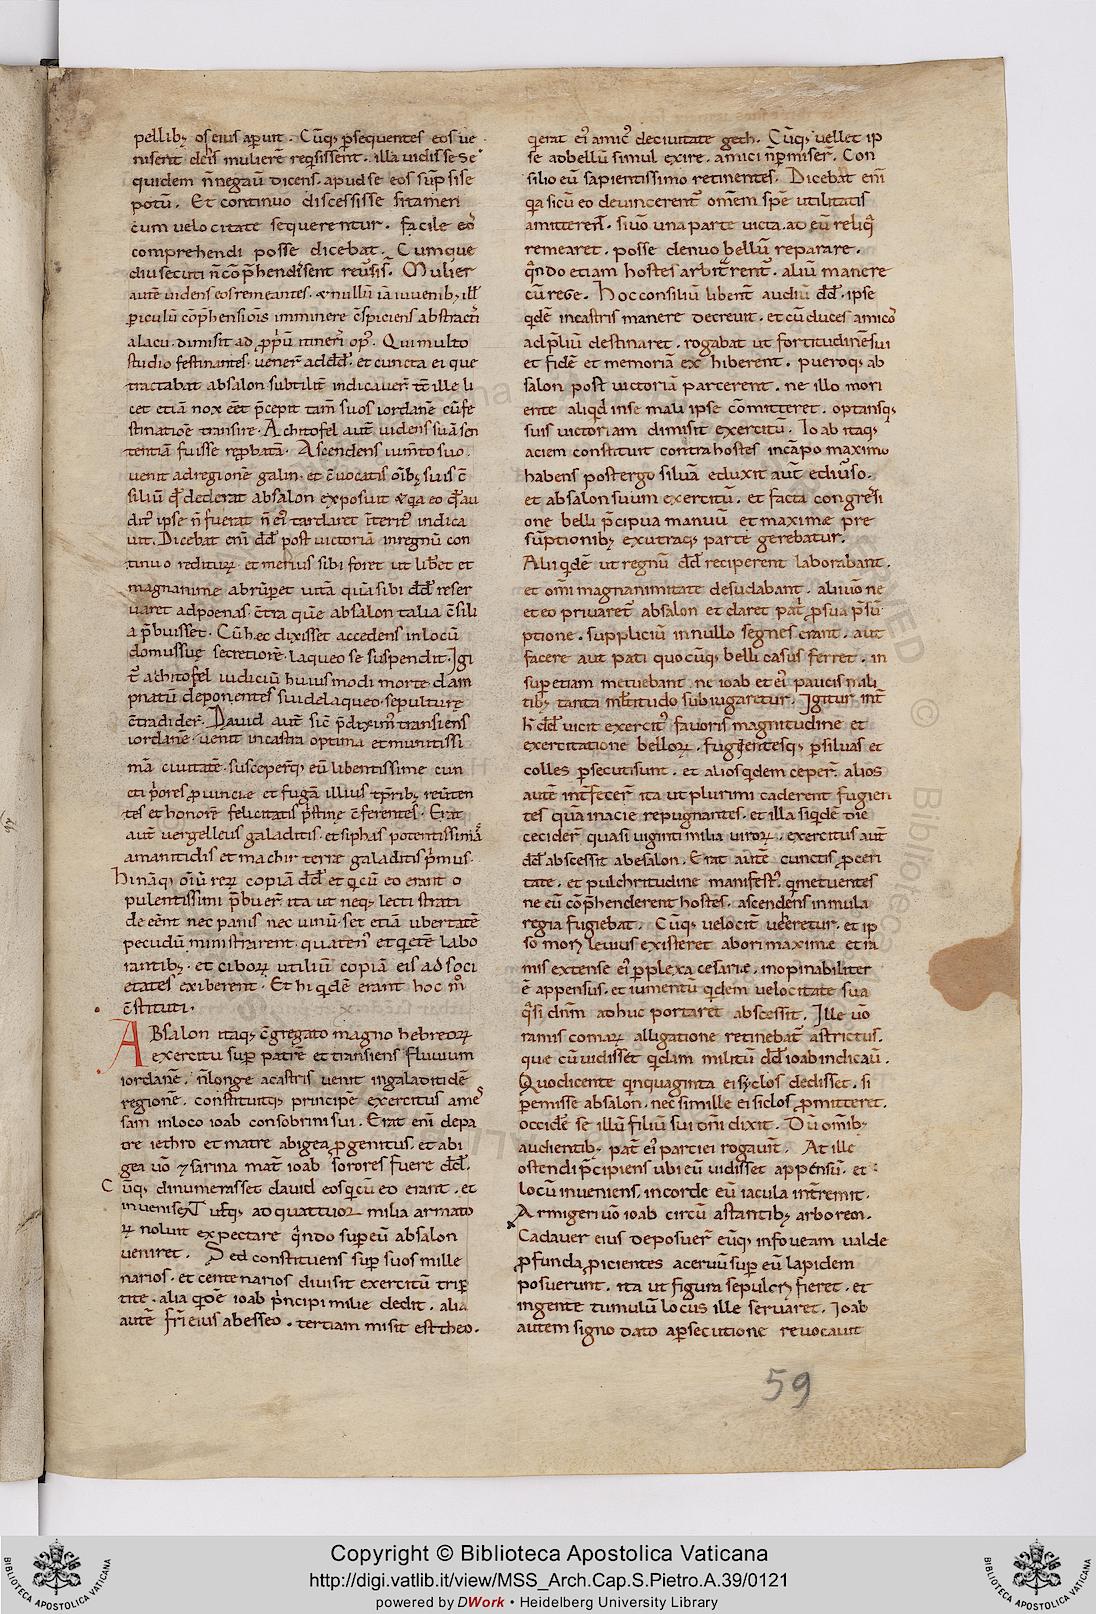 pellib; os eius aperunt. Cūq; psequentes eos ue
nisent de his muliere reqsissent. illa uidisse se
quidem ñ negauit dicens. apud se eos sūpsisse
potū. Et continuo discessisse si tamen
cum uelocitate sequerentur. facile eos
comprehendi posse dicebat. Cumque
diu secuti ñ cōphendissent reusi s̄. Mulier
autē uidens eos remeantes. & nullū iā iuuenib; illis
piculū cōphensionis imminere cspiciens abstractos
a lacu. dimisit ad ppriū itineris op. Qui multo
studio festinantes. uener ad dd. et cuncta ei que
tractabat absalon subtilit indicauer. tc ille li
cet etiā nox eet p̄cepit tam suos iordanē cū fe
stinatione transire. Achitofel aut uidens suā sen
tentiā fuisse repbatā. Ascendens iumto suo.
uenit ad regionē galin. et cuocatis oīb; suis c̄
siliū qd dederat absalon exposuit & qa eo qd au
ditus ipse ñ fuerat ñ ei tardaret interitus indica
uit. Dicebat eni dd post uictoriā in regnū con
tinuo rediturū et melius sibi foret ut libet et
magnanime abrūperet uitā quā sibi dd reser
uaret ad poenas. cōtra quē absalon talia c̄sili
a p̄buisset. Cū hec dixisset accedens in locū
domus sue secretiorē. laqueo se suspendit. Igi
t achitofel iudiciū huiusmodi morte dam
pnatū deponentes sui de laqueo. sepulture
c̄tradider. Dauid aut sic p̄diximus transiens
iordanē. uenit in castra optima et munitissi
mā ciuitatē. susceperq; eū libentissime cun
cti pores puincie et fugā illius tpris reuten
tes et honorē felicitatis pstine c̄ferentes. Erat
aut uergelleus galaditis. et siphas potentissimus
amanitidis et machir terre galaditis p̄mus.
Hi nāq; oīū rerū copiā dd et q cū eo erant o
pulentissimi p̄buer. ita ut neq; lecti strati
de eent nec panis nec uinū. set etiā ubertatē
pecudū ministrarent. quaten et qetē labo
rantib;. et ciborū utiliū copiā eis ad soci
etates exiberent. Et hi qdē erant hoc m
c̄stituti.
Absalon itaq; c̄gregato magno hebreorū
exercitu sup patrē et transiens fluuium
iordanē. ñ longe a castris uenit in galaditidē
regionē. constituitq; principē exercitus ame
sam in loco ioab consobrini sui. Erat eni de pa
tre iethro et matre abigea pgenitus. et abi
gea uo 7 sarina mat ioab sorores fuere dd.
Cūq; dinumerasset dauid eos q cū eo erant. et
inuenisset utiq; ad quattuor milia armato
rū noluit expectare qndo sup eū absalon
ueniret. Sed constituens sup suos mille
narios. et centenarios diuisit exercitū trip
tite. alia qdē ioab p̄ncipi milie dedit. alia
autē fri eius abesseo. tertiam misit esttheo.
qerat ei amic de ciuitate geth. Cūq; uellet ip
se ad bellū simul exire. amici ñ pmiser. Con
silio eū sapientissimo retinentes. Dicebat eni
qa si cū eo deuincerent omem spē utilitatis
amitterent. si uo una parte uicta. ad eū reliq
remearet. posse denuo bellū reparare.
qndo etiam hostes arbitrent. aliū manere
cū rege. Hoc consiliū libent audiu dd. ipse
qdē in castris manere decreuit. et cū duces amicos
ad pliū destinaret. rogabat ut fortitudinē sui
et fidē et memoriā exhiberent. pueroq; ab
salon post uictoriā parcerent. ne illo mori
ente aliqd in se mali ipse cōmitteret. optansq;
suis uictoriam dimisit exercitū. Ioab itaq;
aciem constituit contra hostes in cāpo maximo
habens post ergo siluā eduxit aut e diuso.
et absalon suum exercitū. et facta congressi
one belli p̄cipua manuū et maximæ pre
sūptionib; ex utraq; parte gerebatur.
Alii qdē ut regnū dd reciperent laborabant.
et omi magnanimitate desudabant. alii uo ne
et eo priuaret absalon et daret pat p sua psū
ptione. suppliciū in nullo segnes erant. aut
facere aut pati quocūq; belli casus ferret. in
sup etiam metuebant. ne ioab et ei paucis mili
tib; tanta multitudo subiugaretur. Igitur int
h dd uicit exercitus fauoris magnitudine et
exercitatione bellorū. fugientesq; p siluas et
colles psecuti sunt. et alios qdem ceper. alios
autē intfecer. ita ut plurimi caderent fugien
tes quā in acie repugnantes. et illa siqdē die
cecider quasi uiginti milia uirorū. exercitus aut
dd abscessit abesalon. Erat autē cunctis pceri
tate. et pulchritudine manifest. q metuentes
ne eū cōphenderent hostes. ascendens in mula
regia fugiebat. Cūq; uelocit ueheretur. et ip
so mor leuius existeret. arbori maximæ et ra
mis extense ei pplexa cesariæ. inopinabiliter
ē appensus. et iumentū qdem uelocitate sua
qsi dnm adhuc portaret abscessit. Ille uo
ramis comarū alligatione retinebat astrictus.
que cū uidisset qdam militū dd ioab indicau.
Quo dicente quinquaginta ei syclos dedisset. si
pemisse absalon. nec si mille ei siclos pmitteret.
occidē se illū filiū sui dni dixit. Dū omib;
audientib; pat ei parci ei rogauit. At ille
ostendi p̄cipiens ubi eū uidisset appensū. et
locū inueniens. in corde eū iacula intremit.
Armigeri uo ioab circū astantib; arborem.
Cadauer eius deposuer. eūq; in foueam ualde
pfunda picientes aceruū sup eū lapidem
posuerunt. ita ut figura sepulcri fieret. et
ingente tumulū locus ille seruaret. Ioab
autem signo dato a psecutione reuocauit
59
Copyright © Biblioteca Apostolica Vaticana
http://digi.vatlib.it/view/MSS_Arch.Cap.S.Pietro.A.39/0121
powered by DWork • Heidelberg University Library